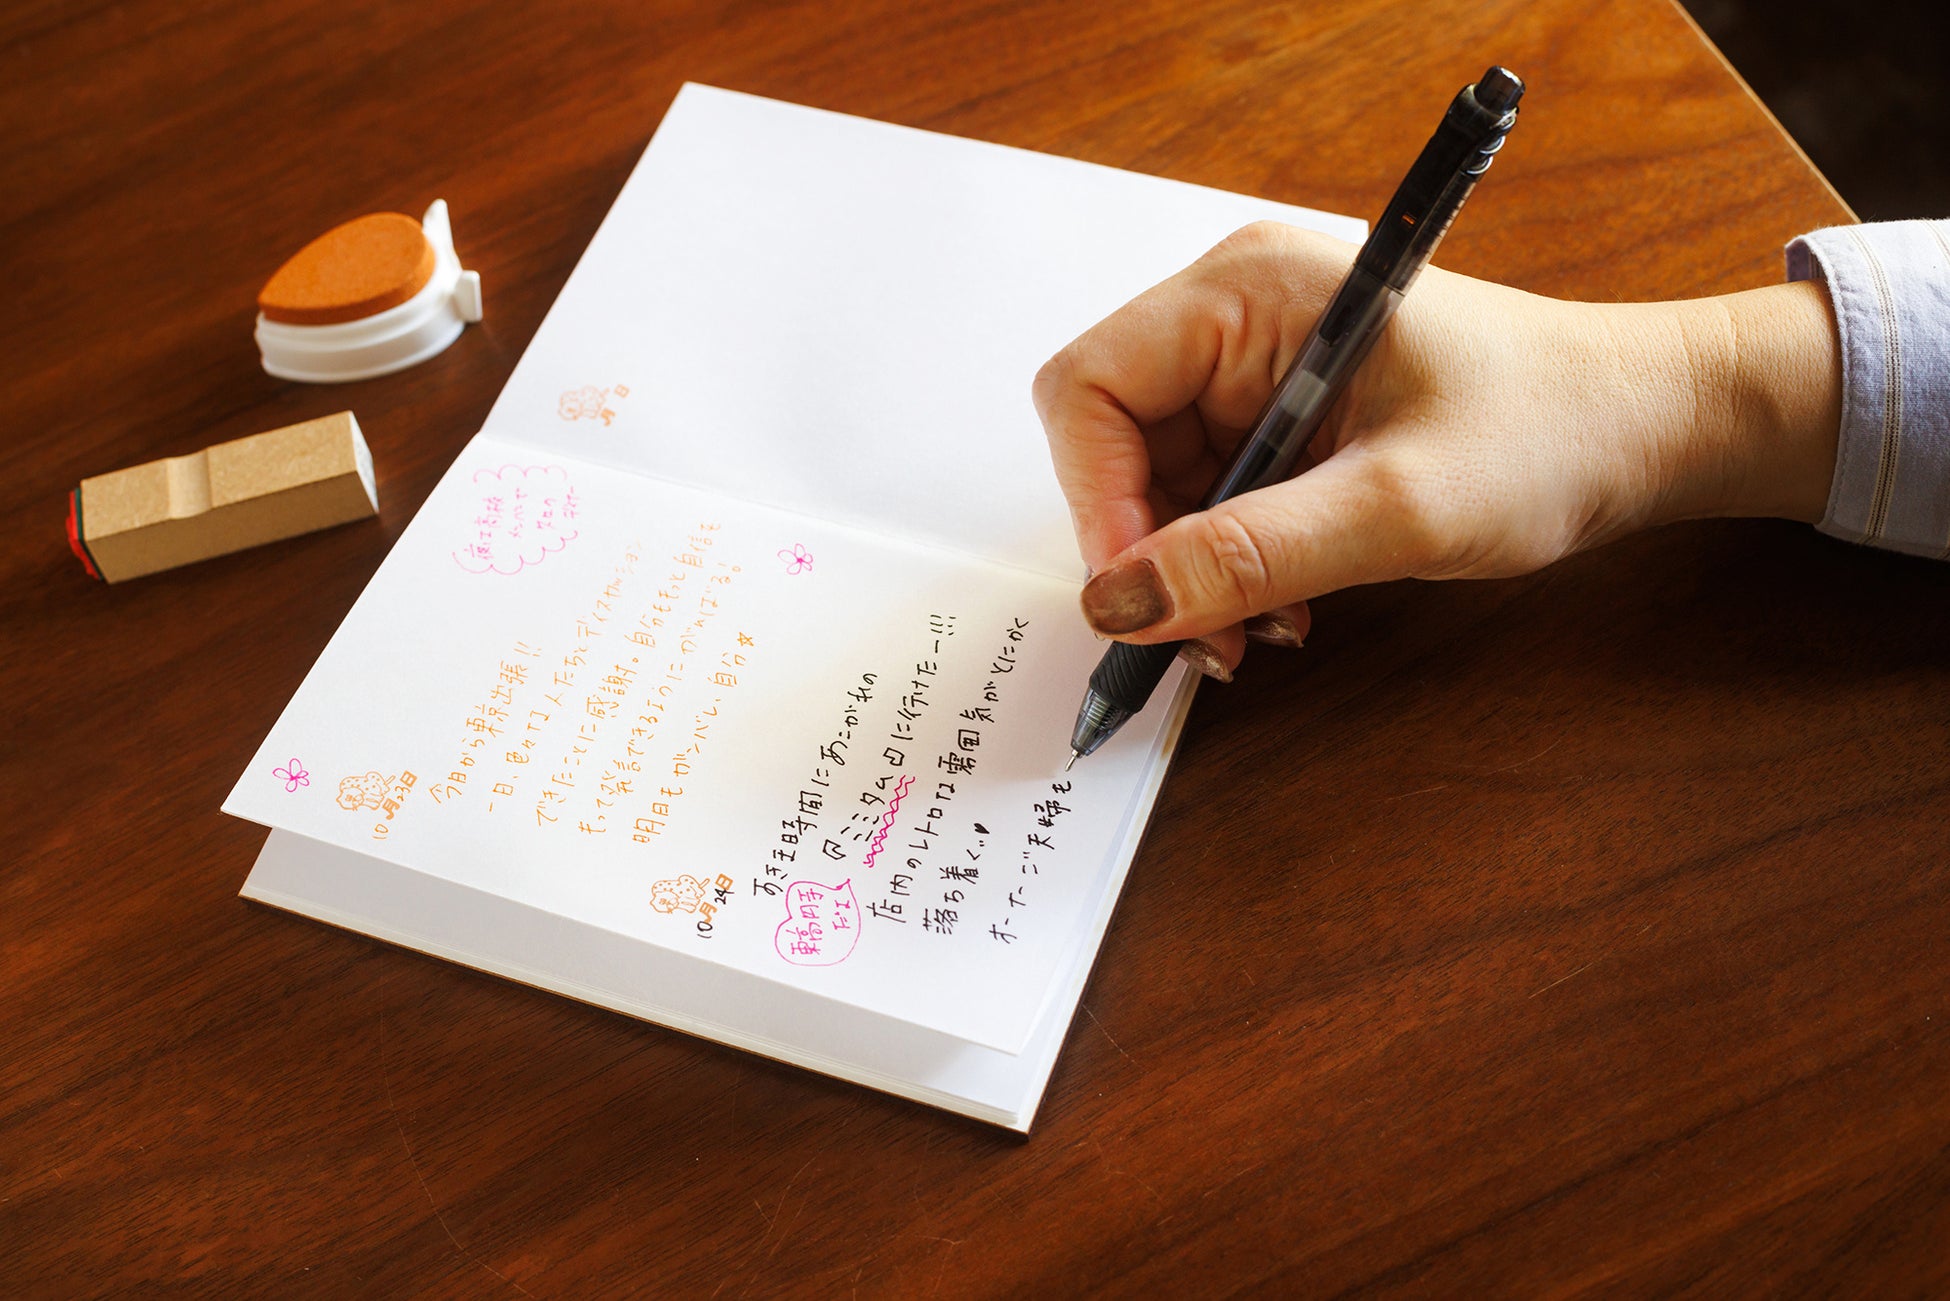 月 日
夜は高校
メンバーで
夕日の
ディナー
10月23日
今日から東京出張!!
一日、色々な人たちとディスカッション
できたことに感謝。自分ももっと自信を
もって発言できるようにがんばる!
明日もガンバレ、自分☆
10月24日
すき玉時間にあこがれの
「ミミタム」に行けたー!!!
東高円寺
だよ
店内のレトロな雰囲気がとにかく
落ち着く…♥
オーナーご夫婦も